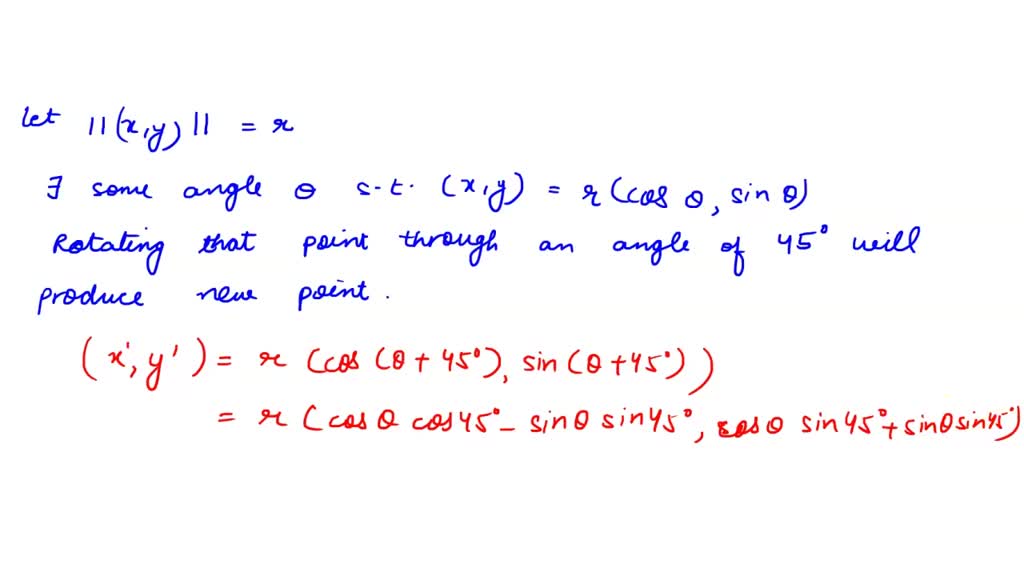 let ||(x,y)|| = r
∃ some angle θ s.t. (x,y) = r (cos θ, sin θ)
Rotating that point through an angle of 45° will
produce new point.
(x', y') = r (cos (θ + 45°), sin (θ + 45°))
= r (cos θ cos 45° - sin θ sin 45°, cos θ sin 45° + sin θ sin 45°)